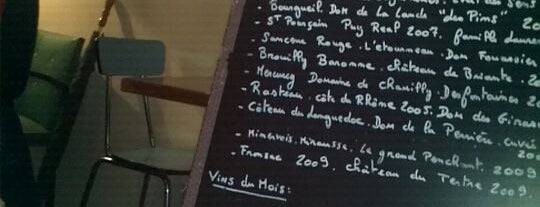 - Bourgueil. Dom de la Lande "des Pins" 20
- St Pourçain Puy Réal 2007. famille Laure
- Sancerre Rouge. L'étourneau. Dom Fournier
- Brouilly Baronne. château de Briante. 20
- Mercurey Domaine de Chamilly. Desfontaines 20
- Rasteau. côte du Rhône 2005. Dom des Giras
- Côteau du Languedoc. Dom de la Perrière. cuvé
- Minervois. Mirausse. Le grand Penchant. 2009
- Fronsac 2009. château du Tertre 2009.
Vins du Mois: